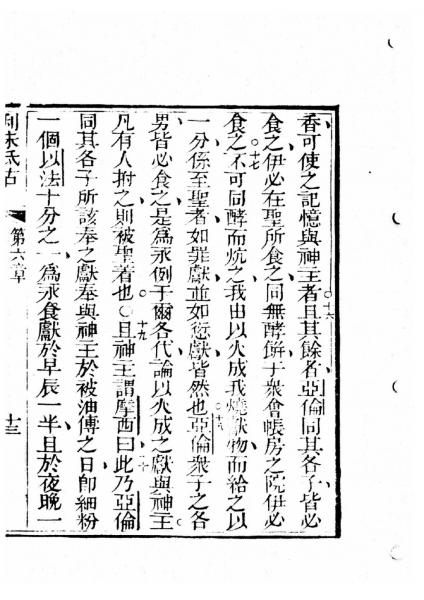 香可使之記憶與神主者且其餘者亞倫同其各子皆必
十六
食之伊必在聖所食之同無酵餅于衆會帳房之院伊必
十七
食之不可同酵而炕之我由以火成我燒獻物而給之以
一分係至聖者如罪獻並如愆獻皆然也亞倫衆子之各
十八
男皆必食之是爲永例于爾各代論以火成之獻與神主
凡有人拊之則被聖着也○且神主謂摩西曰此乃亞倫
十九
二十
同其各子所該奉之獻奉與神主於被油傅之日卽細粉
一個以法十分之一爲永食獻於早辰一半且於夜晚一
利未氐古
第六章
十三